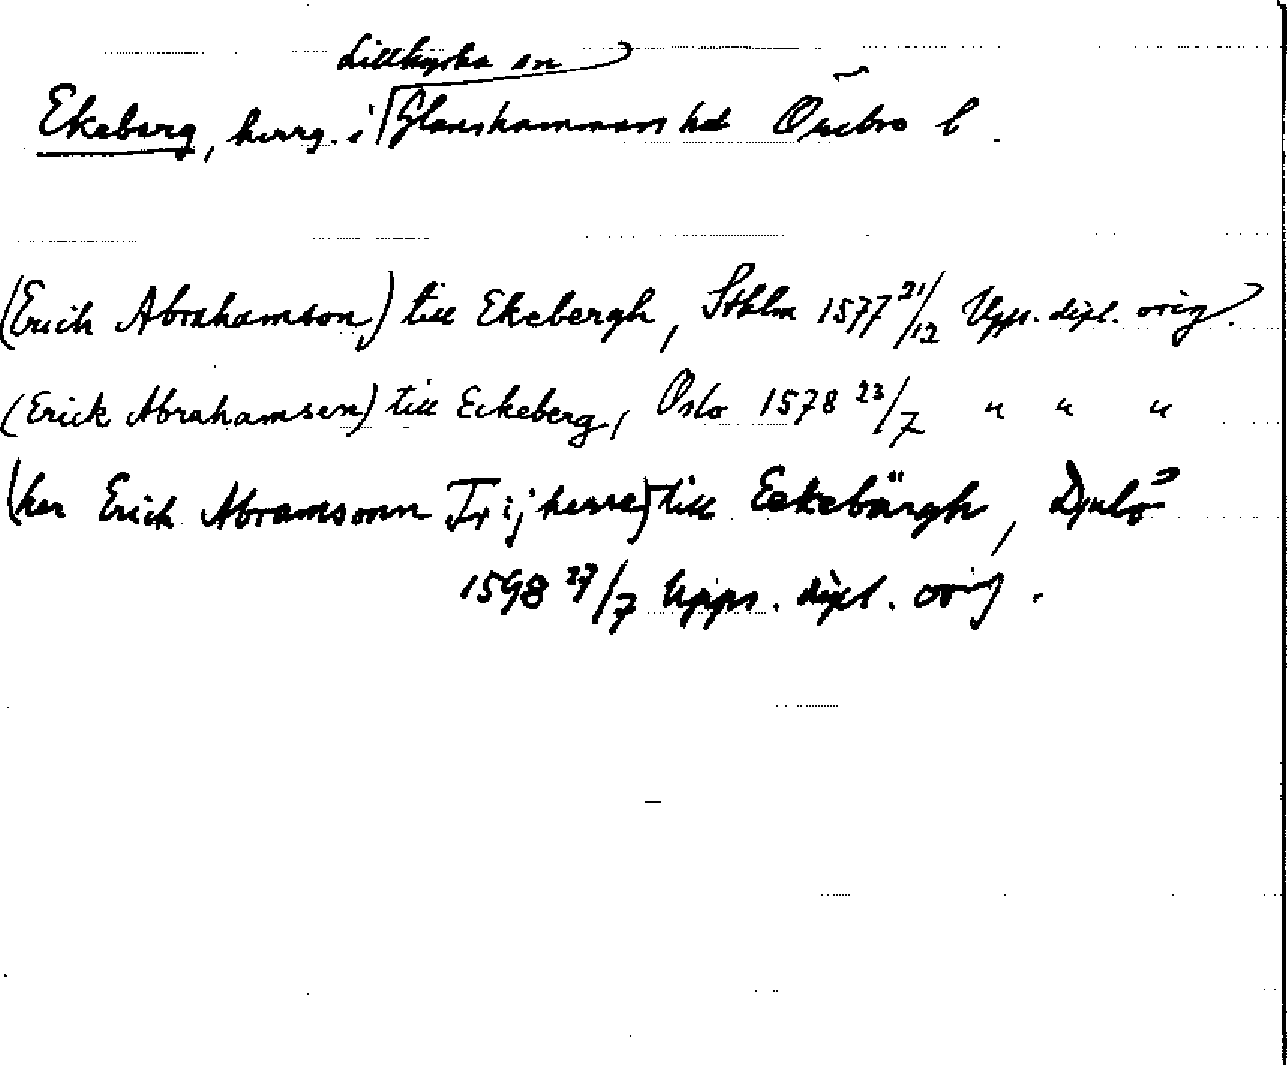 Lillkyrka sn
Ekeberg, herrg. i Glanshammars hd Örebro l.
(Erich Abrahamson) till Ekebergh, Sthlm 1577 21/12 Upps. dipl. orig.
(Erick Abrahamsen) till Eckeberg, Oslo 1578 23/7 " " "
(her Erich Abramsonn Frij herre) till Eekebärgh, Dynbö
1598 27/7 Upps. dipl. orig.